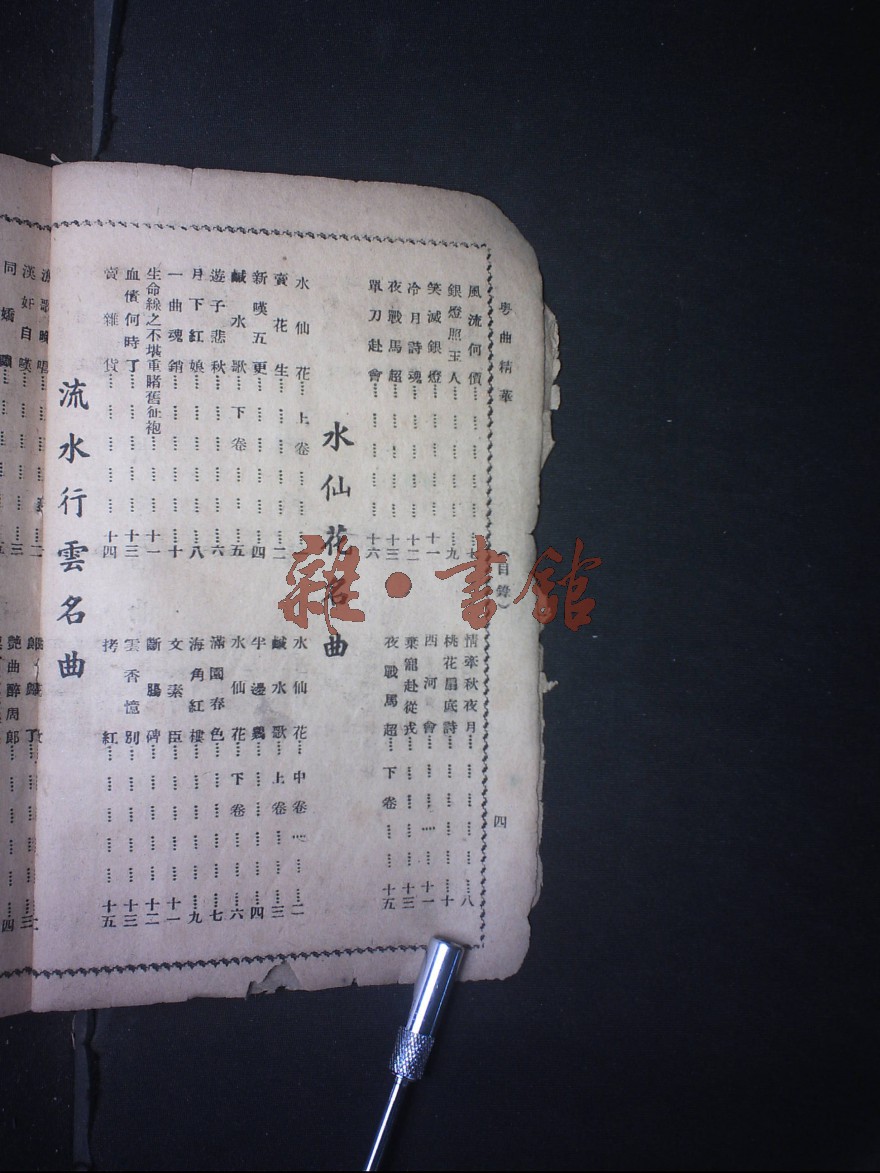 粵曲精華
（目錄）
四
風流何價………………七
情牽秋夜月………………八
銀燈照玉人………………九
桃花扇底詩………………十
笑滅銀燈………………十一
西河會………………十一
冷月詩魂………………十二
棄寵赴從戎………………十三
夜戰馬超………………十三
夜戰馬超……下卷………十五
單刀赴會………………十六
水仙花名曲
水仙花……上卷………
水仙花……中卷………二
賣花生………………二
鹹水歌……上卷………三
新嘆五更………………四
半邊鷄………………四
鹹水歌……下卷………五
水仙花……下卷………六
遊子悲秋………………六
滿園春色………………七
月下紅娘………………八
海角紅樓………………九
一曲魂銷………………十
文素臣………………十一
生命線之不堪重睹舊征袍………十一
斷腸碑………………十二
血債何時了………………十三
雲香憶別………………十三
賣雜貨………………十四
拷紅………………十五
流水行雲名曲
漁歌晚唱………………二
漢奸自嘆………………三
艷曲醉周郎………………四
雜·書館